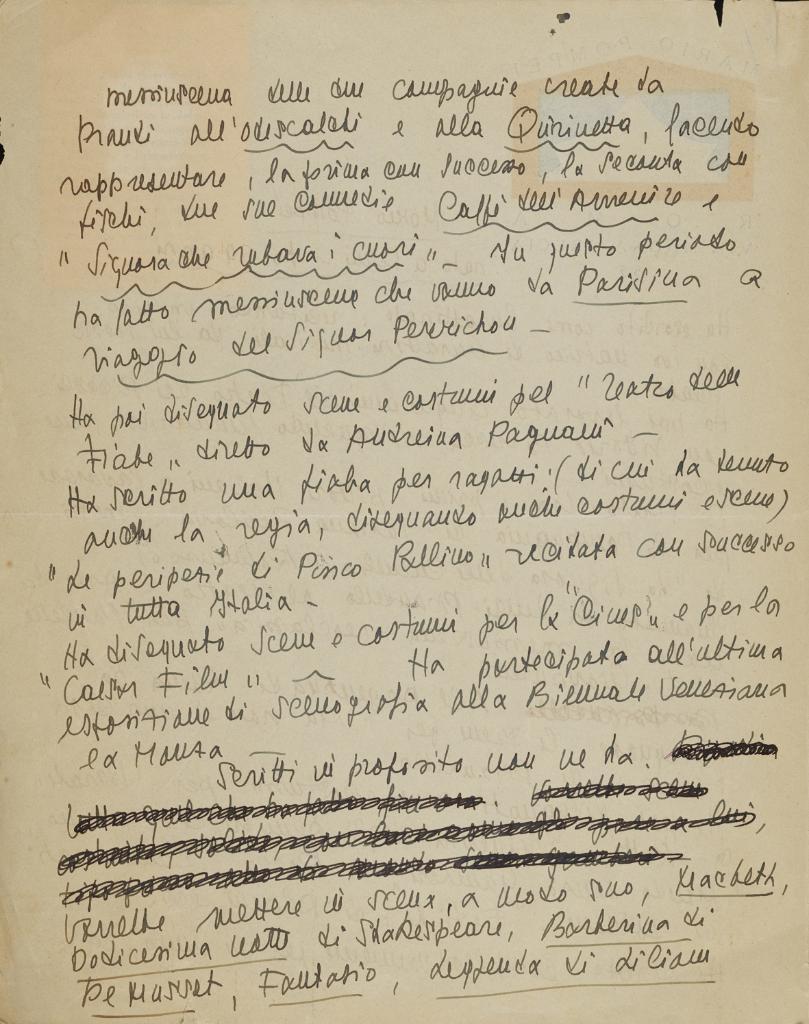 messinscena delle due compagnie create da
Prandi all'Odescalchi e alla Quirinetta, facendo
rappresentare, la prima con successo, la seconda con
fischi, due sue commedie Caffè dell'Armenizo e
" Signora che rubava i cuori " - In questo periodo
ha fatto messinscene che vanno da Parisina a
viaggio del Signor Perrichon -
Ha poi disegnato scene e costumi pel " Teatro delle
Fiabe " diretto da Andreina Pagnani -
Ha scritto una fiaba per ragazzi: (di cui ha tenuto
anche la regia, disegnando anche costumi e scene)
" Le peripezie di Pinco Pallino " recitata con successo
in tutta Italia -
Ha disegnato scene e costumi per la "Cines" e per la
" Caesar Film " - Ha partecipato all'ultima
esposizione di scenografia alla Biennale Veneziana
e a Monza -
Scritti in proposito non ne ha.
Vorrebbe mettere in scena, a modo suo, Macbeth,
Dodicesima notte di Shakespeare, Barberina di
De Musset, Fantasio, Leggenda di Liliom
MARIO POMPEI